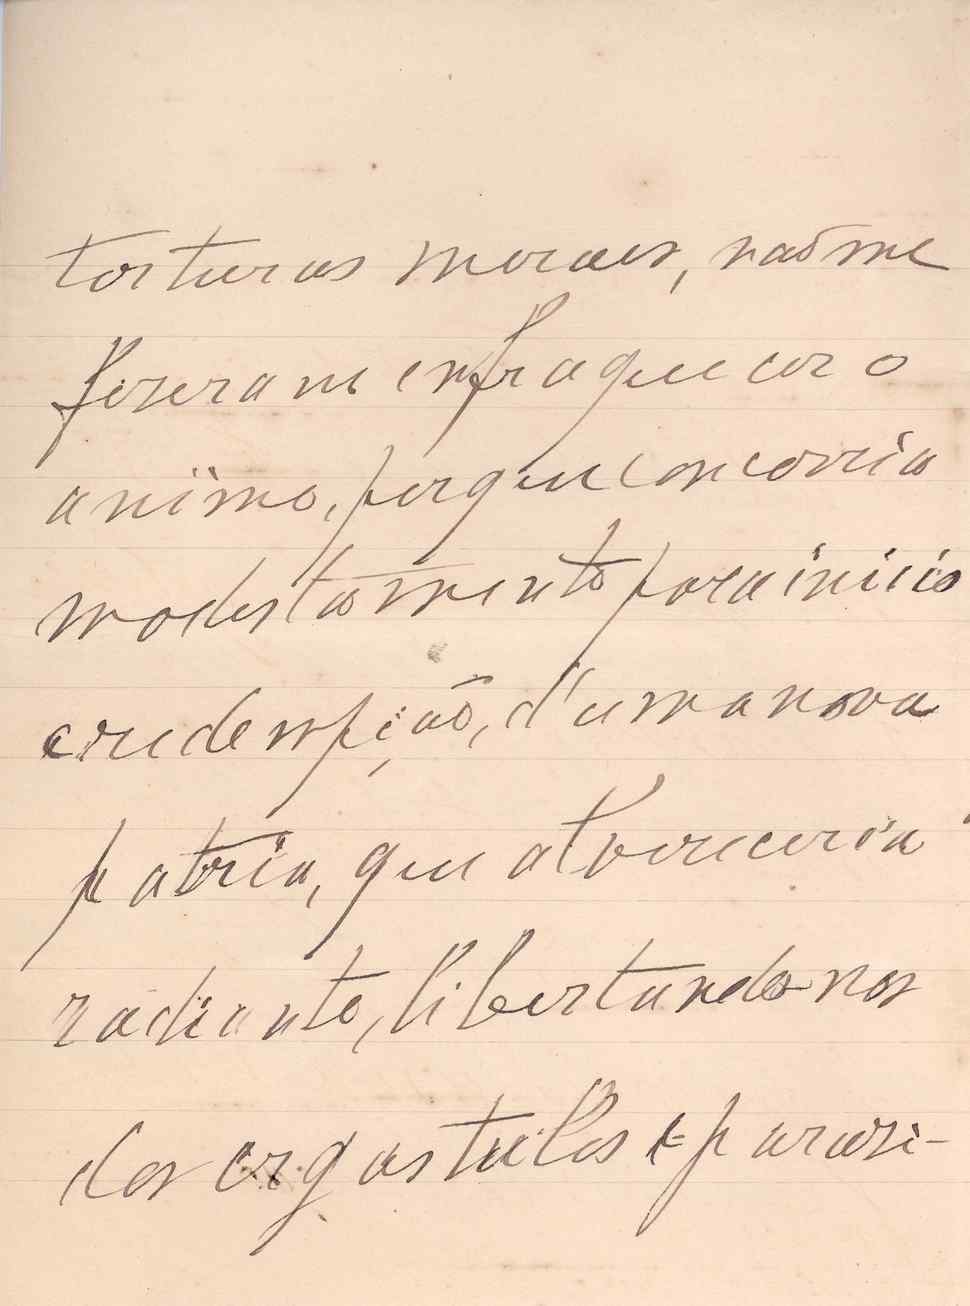 torturas moraes, não me
fizeram enfraquecer o
animo, porque concorria
modestamente para inicio
e redempção, d'uma nova
patria, que alvoreceria
radiante, libertando-nos
dos ergastulos e parasi-